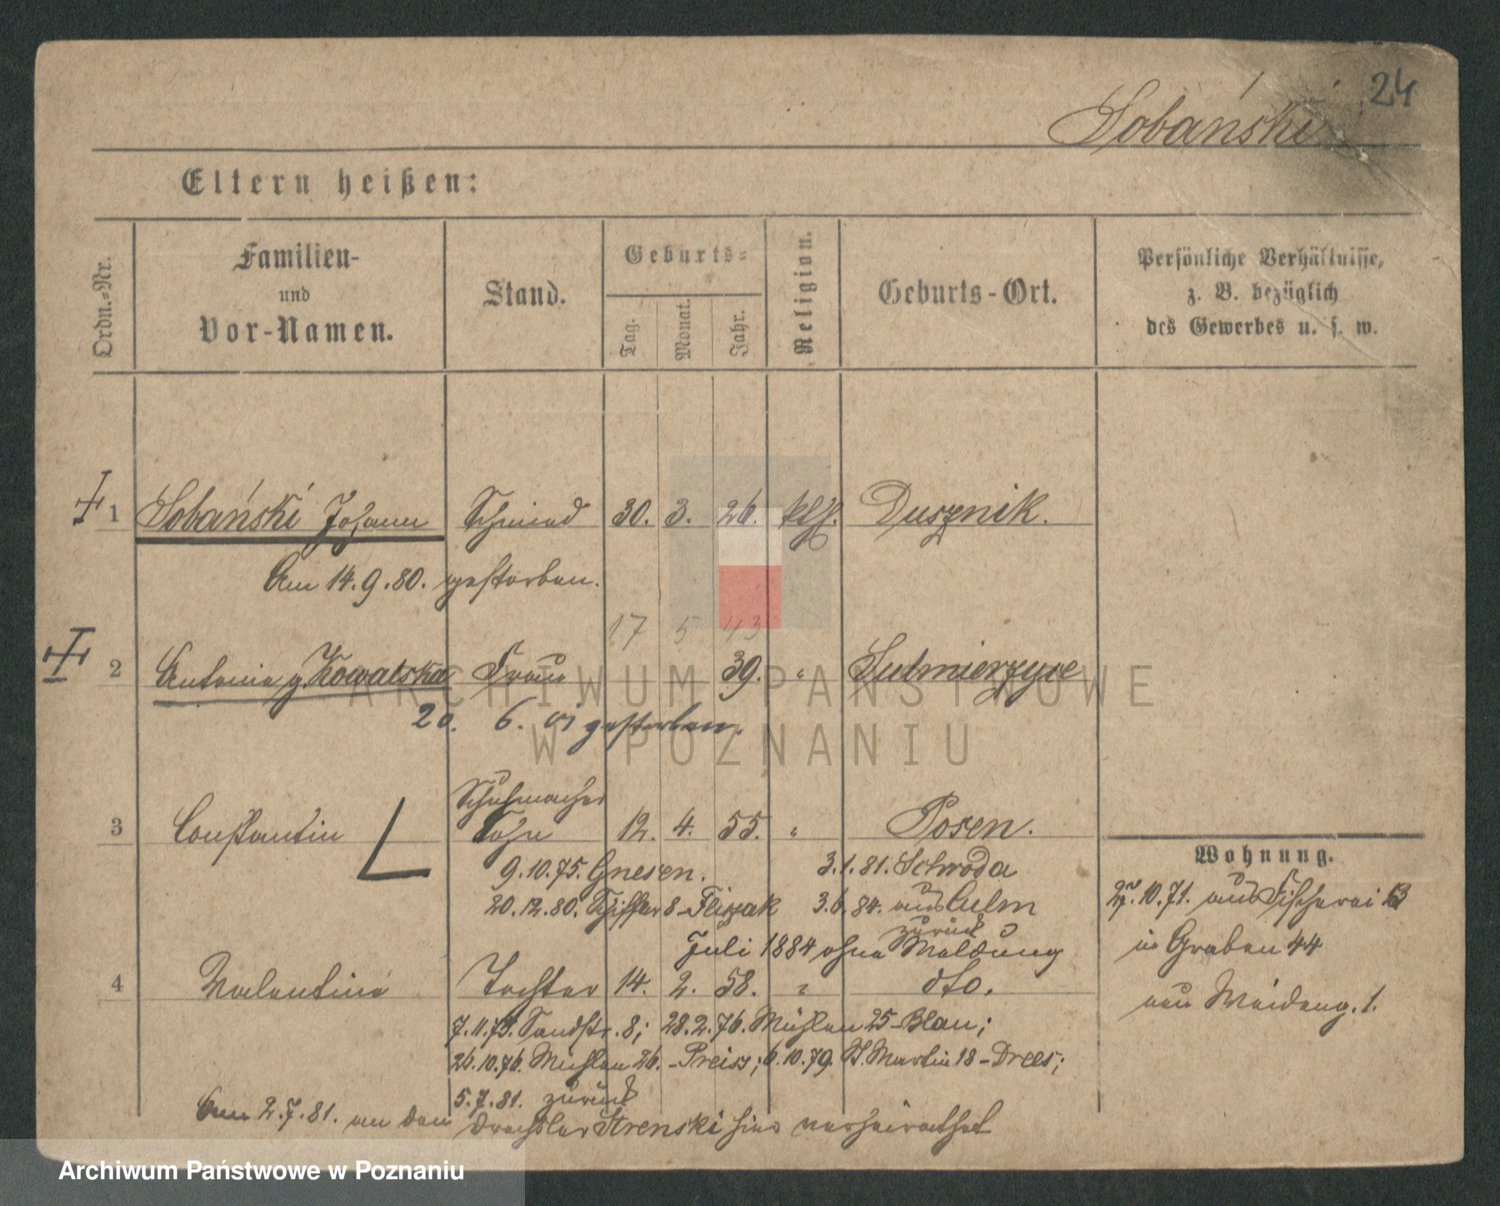 24
Sobański
Eltern heißen:
Ordn.-Nr.
Familien-
und
Vor-Namen.
Stand.
Geburts-
Tag.
Monat.
Jahr.
Religion.
Geburts-Ort.
Persönliche Verhältnisse,
z. B. bezüglich
des Gewerbes u. s. w.
1 Sobański Johann Schmied 30. 3. 26. klh. Dusznik.
Am 14.9.80. gestorben.
17 5 43
2 Antonie g. Kowalska Frau 39. " Sulmierzyce
20. 6. 01 gestorben.
Schuhmacher
3 Constantin Sohn 12. 4. 55. " Posen.
9.10.75. Gnesen. 3.1.81. Schroda
20.12.80. Schiffer 8 - Fliszak 3.6.84. aus Culm
zurück
Juli 1884 ohne Meldung
4 Valentine Tochter 14. 2. 58. " dto.
7.11.75. Sandstr. 8; 28.2.76. Mühlen 25 - Blau;
26.10.76. Mühlen 26. - Preisz; 6.10.79. St. Martin 18 - Drees;
5.7.81. zurück
Am 2.7.81. an den Drechsler Strenski hier verheirathet
Wohnung.
27.10.71. aus Fischerei 13
in Graben 44
neu Weideng. 1.
ARCHIWUM PAŃSTWOWE
W POZNANIU
Archiwum Państwowe w Poznaniu